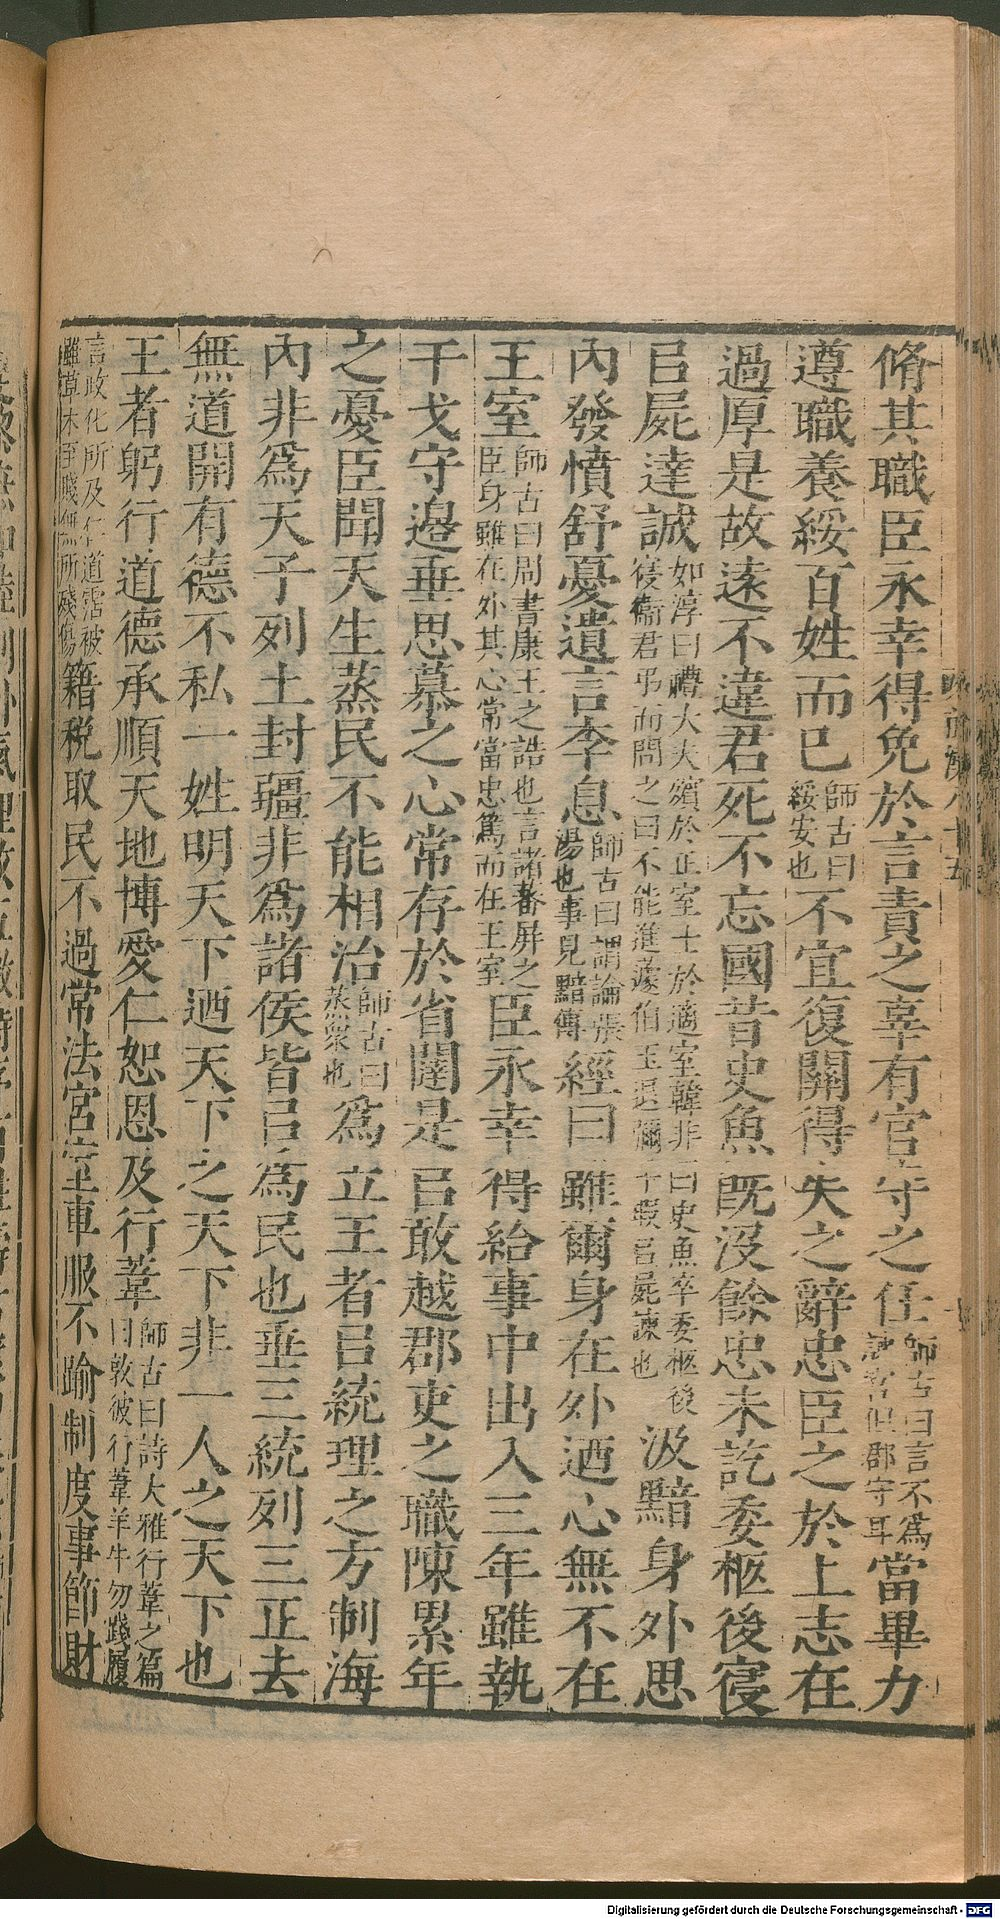 脩其職臣永幸得免於言責之辜有官守之任師古曰言不為諫官但郡守耳當畢力
遵職養綏百姓而已師古曰綏安也不宜復關得失之辭忠臣之於上志在
過厚是故遠不違君死不忘國昔史魚既沒餘忠未訖委柩後寑
㠯屍達誠如淳曰禮大夫殯於正室士於適室韓非曰史魚卒委柩後寑衞君弔而問之曰不能進蘧伯玉退彌子瑕㠯屍諫也汲黯身外思
內發憤舒憂遺言李息師古曰謂論張湯也事見黯傳經曰雖爾身在外迺心無不在
王室師古曰周書康王之誥也言諸蕃屏之臣身雖在外其心常當忠篤而在王室臣永幸得給事中出入三年雖執
干戈守邉垂思慕之心常存於省闥是㠯敢越郡吏之職陳累年
之憂臣聞天生蒸民不能相治師古曰蒸衆也為立王者㠯統理之方制海
內非爲天子列土封疆非爲諸侯皆㠯爲民也垂三統列三正去
無道開有德不私一姓明天下迺天下之天下非一人之天下也
王者躬行道德承順天地博愛仁恕恩及行葦師古曰詩大雅行葦之篇曰敦彼行葦羊牛勿踐履
言政化所及仁道霑被雖草木至賤無所殘傷籍稅取民不過常法宮室車服不踰制度事節財
Digitalisierung gefördert durch die Deutsche Forschungsgemeinschaft - DFG